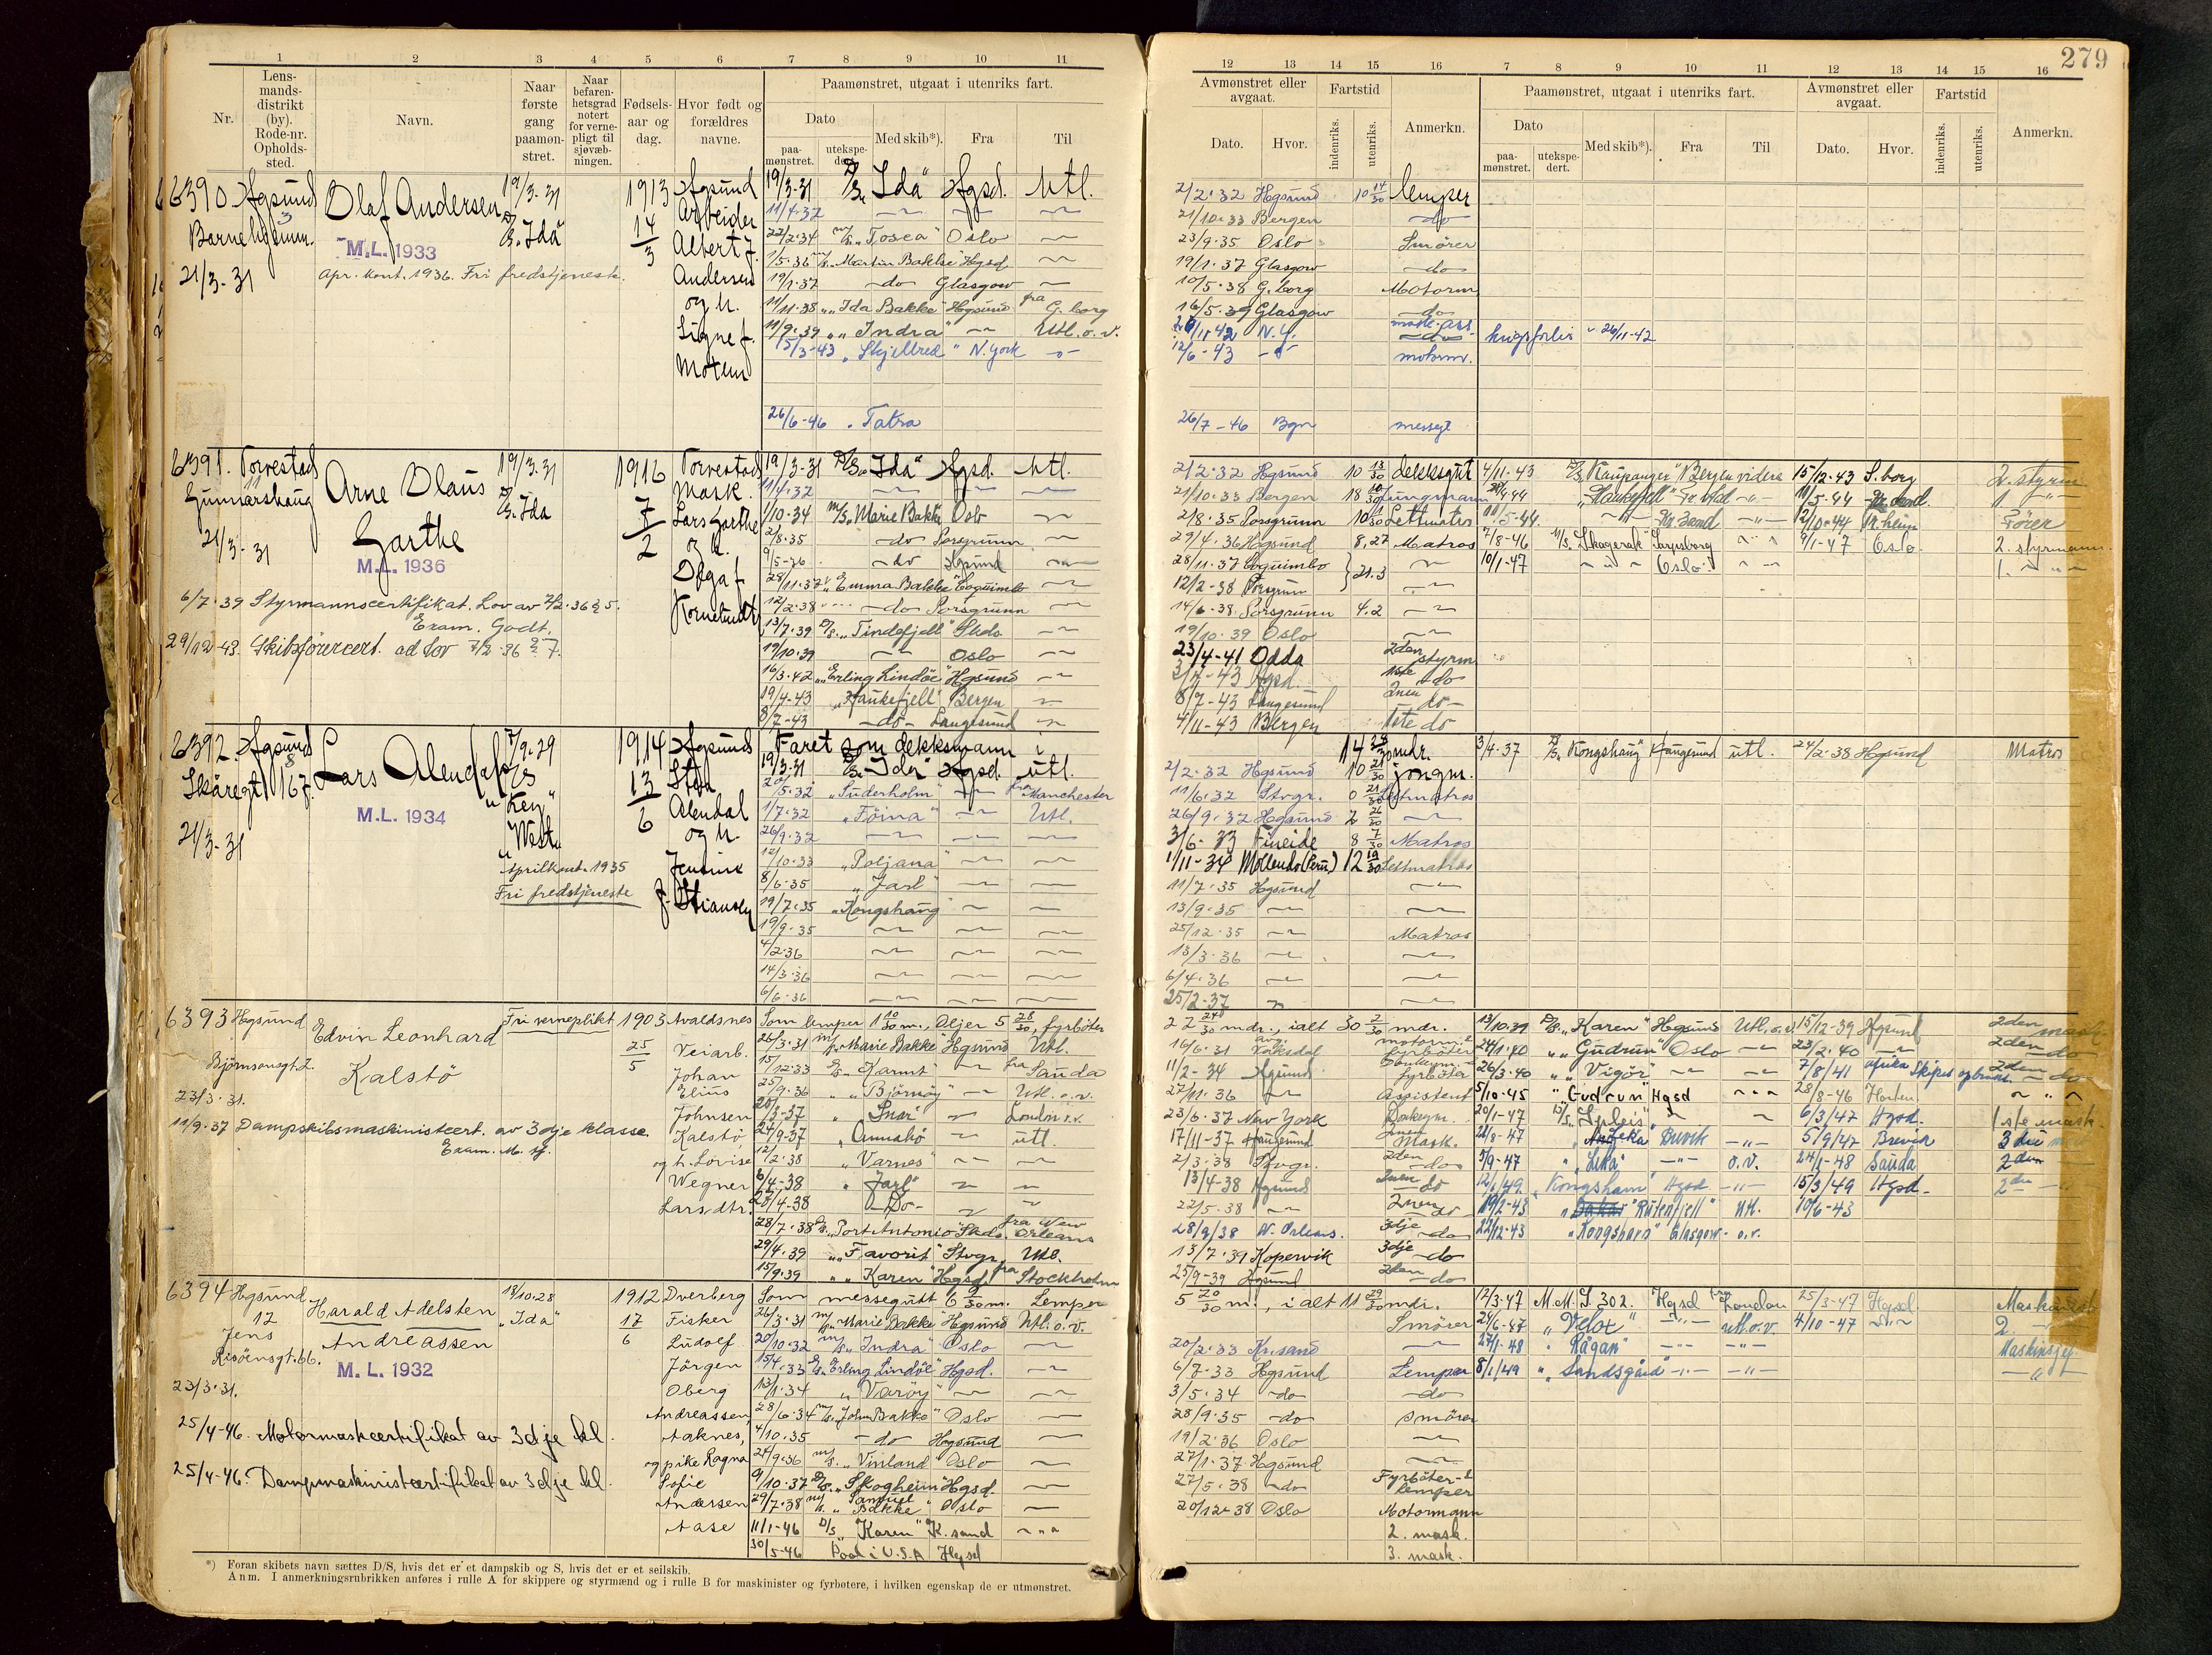 279
1 2 3 4 5 6 7 8 9 10 11
Nr.
Lens-
mands-
distrikt
(by).
Rode-nr.
Opholds-
sted.
Navn.
Naar
første
gang
paamøn-
stret.
Naar
befaren-
hetsgrad
notert
for verne-
pligt til
sjøvæb-
ningen.
Fødsels-
aar og
dag.
Hvor født og
forældres
navne.
Paamønstret, utgaat i utenriks fart.
Dato
paa-
mønstret.
Med skib*).
Fra
Til
12 13 14 15 16 7 8 9 10 11 12 13 14 15 16
Avmønstret eller
avgaat.
Dato.
Hvor.
Fartstid
indenriks.
utenriks.
Anmerkn.
Paamønstret, utgaat i utenriks fart.
Dato
paa-
mønstret.
utekspe-
dert.
Med skib*).
Fra
Til
Avmønstret eller
avgaat.
Dato.
Hvor.
Fartstid
indenriks.
utenriks.
Anmerkn.
6390 Hgsund Olaf Andersen 19/3-31 1913 Hgsund
M.L. 1933
"Ida" 14/3 Arbeider
Albert J.
Andersen
og h.
Signe f.
21/3-31
apr. kont. 1936. Fri fredstjeneste.
19/3-31 D/S "Ida" Hgsd. Utl.
11/4-32
22/2-34 M/S "Tosca" Oslo
1/5-36 Martin Bakke Hgsd
19/1-37 do Glasgow
11/11-38 "Ida Bakke" Hgsund fra G.borg
11/9-39 "Indra" Utl. o. v.
15/3-43 "Skjelbred" N. York
26/6-46 Tatra
2/2-32 Hgsund 10 14/30 lemper
21/10-33 Bergen do
23/9-35 Oslo Smörer
19/1-37 Glasgow do
10/5-38 G.borg Motorm
16/5-39 Glasgow do
N.Y. krigsforlis 26/11-42
12/6-43 motorm.
26/7-46 Bgn messegt
6391. Torvestad Arne Olaus Garthe 19/3-31 1916 Torvestad
Gunnarshaug "Ida" 7/2 Mask.
Lars Garthe
og h.
Olga f.
21/3-31
M.L. 1936
6/7-39 Styrmannscertifikat. Lov av 7/2-36 § 5.
Exam. Godt.
29/12-43. Skibsförercert. ad lov 7/2-36 § 7.
19/3-31 D/S "Ida" Hgsd. Utl.
11/4-32
1/10-34 M/S "Marie Bakke" Oslo
2/8-35 do Porsgrunn
9/5-36 do Hgsund
28/11-37 "Emma Bakke" Coquimbo
12/2-38 do Porsgrunn
13/7-39 D/S "Tindefjell" Skds
19/10-39 Oslo
16/3-42 "Erling Lindöe" Hgsund
19/4-43 "Haukefjell" Bergen
8/7-43 do Langesund
2/2-32 Hgsund 10 13/30 dekksgut
21/10-33 Bergen 18 10/30 Jungmann
2/8-35 Porsgrunn Lettmatros
29/4-36 Hgsund 8,27 Matros
28/11-37 Coquimbo 21.3
12/2-38 Porsgrunn
14/6-38 Porsgrunn 4.2
19/10-39 Oslo
23/4-41 Odda 2den styrm
43 Hgsd. 1ste do
8/7-43 Langesund 2nen do
4/11-43 Bergen 1ste do
4/11-43 D/S "Kaupanger" Bergen videre 15/12-43 S.borg 2. styrm
"Haukefjell" 11/5-44 Kr.sand 1
11/5-44 Kr.sand 12/10-44 Tr.heim Förer
7/8-46 M/S "Skagerak" Sarpsborg 9/1-47 Oslo 2. styrmann
10/1-47 Oslo 1.
6392. Hgsund Lars Alendal 7/9-29 1914 Hgsund
Skåregt 167 13/6 Alendal
og h.
"Key West"
21/3-31
M.L. 1934
Aprilkont. 1935
Fri fredstjeneste
Faret som dekksmann i 14 mdr.
19/3-31 D/S "Ida" Hgsd. utl.
20/5-32 "Suderholm" fra Manchester
1/7-32 "Föina" Utl.
26/9-32
12/10-33 "Poljana"
8/6-35 "Jarl"
19/7-35 "Kongshaug"
19/9-35
4/2-36
14/3-36
6/6-36
2/2-32 Hgsund 10 21/30 jongm.
11/6-32 Stvgr. 0 21/30 Lettmatros
26/9-32 Hgsund 2 26/30
3/6-33 Fineide 8 7/30 Matros
1/11-34 Mollendo (Peru) 12 19/30 Lettmatros
11/7-35 Hgsund
13/9-35
25/12-35 Matros
13/3-36
6/4-36
25/2-37
3/4-37 D/S "Kongshaug" Haugesund utl. 24/2-38 Hgsund Matros
6393 Hgsund Edvin Leonhard Kalstö Fri verneplikt 1903 Avaldsnes
Björnsonsgt. 25/5 Veiarb.
Johan
Elius
Johnsen
Kalstö,
og h. Lovise
Wegner
Larsdtr.
23/3-31.
11/9-37 Dampskibsmaskinistcert. av 3dje klasse.
Som lemper 1 10/30 m., Oljer 5 28/30, fyrböter 22 24/30 mdr., ialt 30 2/30 mdr.
26/3-31 M/S "Marie Bakke" Hgsund Utl.
15/12-33 "Karmt" fra Sauda
25/9-36 "Björnöy" Utl. o.v.
20/3-37 "Snar" London o.v.
27/9-37 "Annahö" utl.
12/2-38 "Varnes"
6/4-38 "Jarl"
28/4-38 Do
28/7-38 "Port Antonio" Skds. fra New Orleans
29/4-39 "Favorit" Stvgr Utl.
15/9-39 "Karen" Hgsd. fra Stockholm
16/6-31 motorm. & fyrböter
11/2-34 Hgsund fyrböter
27/11-36 Assistent
23/6-37 New York Dekksm.
17/11-37 Haugesund 2nen Mask.
2/3-38 Stvgr. 2den do
13/4-38 Hgsund 2nen do
22/5-38 2nen do
28/9/38 N. Orleans. 3dje do
13/7-39 Kopervik 3dje do
25/9-39 Hgsund 2den do
13/10-39 D/S "Karen" Hgsund Utl. o.v. 15/12-39 Hgsund 2den mask.
24/1-40 "Gudrun" Oslo 23/2-40 2den do
26/3-40 "Vigör" 7/8/41 Afrika Skipet opbragt 2den do
5/10-45 "Gudrun" Hgsd 28/8-46 Horten
20/1-47 D/S "Spleis" 6/3/47 Hgsd. 1ste mask.
21/8-47 Brevik 5/9/47 Brevik 3die
5/9-47 "Leka" o.v. 24/1-48 Sauda 2den
12/1/49 "Kongshavn" Hgsd 15/3/49 Hgsd 2den
19/2-43 "Rutenfjell" Utl. 10/6-43
22/12-43 "Kongshavn" Glasgow o.v.
6394 Hgsund Harald Adelsten Andreassen 13/10-28 "Ida" 1912 Dverberg
12 17/6 Fisker
Jens Ludolf
Risöensgt. 66. Jörgen
Oberg
Andreassen
Aaknes,
og pike Ragna
Sofie
Andersen
Aase
M.L. 1932
23/3-31.
25/4-46. Motormaskcertifikat av 3dje kl.
25/4-46. Dampmaskinistcertifikat av 3dje kl.
Som messegutt 6 9/30 m. Lemper 5 20/30 m., i alt 11 29/30 mdr.
26/3-31 M/S "Marie Bakke" Hgsund Utl. o.v.
20/10-32 M/S "Indra" Oslo
15/4-33 "Erling Lindöe" Hgsd.
13/1-34 "Varöy"
28/6-34 M/S "John Bakke" Oslo
4/10-35 do Hgsund
24/9-36 M/S "Vinland" Oslo
9/10-37 D/S "Skogheim" Hgsd.
29/7-38 M/S "Samuel Bakke" Oslo
11/1-46 D/S "Karen" K.sand
30/5-46 Pool i U.S.A Hgsd
Smörer
20/2-33 Kr.sand
6/7-33 Hgsund Lemper
3/5-34 do do
28/9-35 do Smörer
19/2-36 Oslo
27/1-37 Hgsund
27/5-38 do Fyrböter & lemper
20/12-38 Oslo Motormann
2. mask.
3. mask.
12/3-47 M.M.S 302. Hgsd fra London 25/3-47 Hgsd. Maskinist
24/6-47 "Velox" utl. o.v. 4/10-47 2.
27/1-48 "Rågan" Maskinsjef
8/1/49 "Sandsgård"
*) Foran skibets navn sættes D/S, hvis det er et dampskib og S, hvis det er et seilskib.
Anm. I anmerkningsrubrikken anføres i rulle A for skippere og styrmænd og i rulle B for maskinister og fyrbøtere, i hvilken egenskap de er utmønstret.